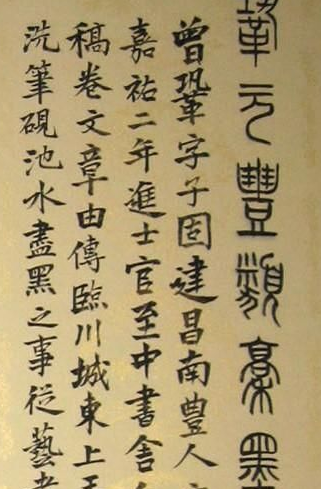 鞏元豐類稾
曾鞏字子固建昌南豐人
嘉祐二年進士官至中書舍
稿卷文章由傳臨川城東上
洗筆硯池水盡黑之事從藝